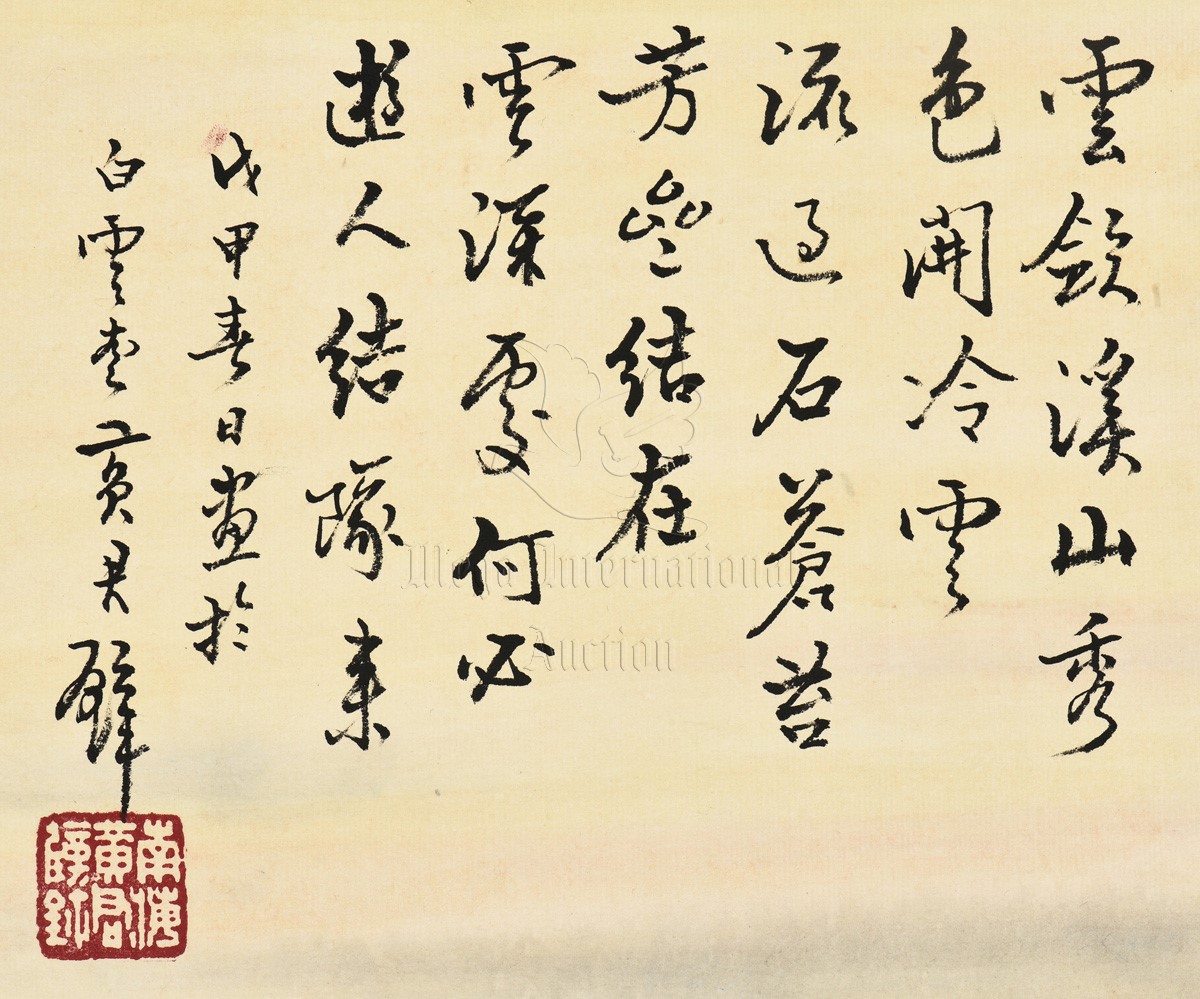 雲斂溪山秀
色開冷雲
流過石蒼苔
芳結在
雲深處何必
遊人結隊来
戊申春日畫於
白雲堂黃君璧
南海
黃君
璧鉨
International
Auction